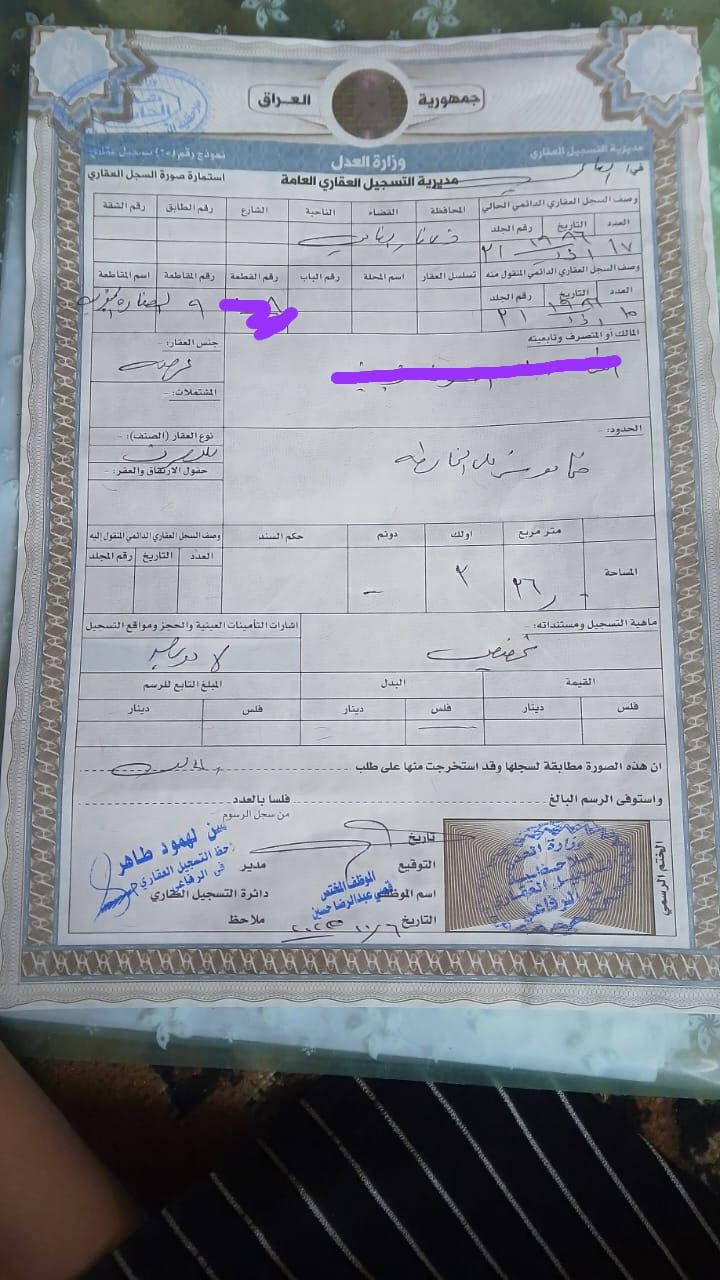 جمهورية العراق
وزارة العدل
مديرية التسجيل العقاري
نموذج رقم (٢٥) تسجيل عقاري
مديرية التسجيل العقاري العامة
في الرفاعي
استمارة صورة السجل العقاري
وصف السجل العقاري الدائمي الحالي المحافظة القضاء الناحية الشارع رقم الطابق رقم الشقة
العدد التاريخ رقم الجلد
١٧ آذار ٢١
ذي قار الرفاعي
وصف السجل العقاري الدائمي المنقول منه تسلسل العقار اسم المحلة رقم الباب رقم القطعة رقم المقاطعة اسم المقاطعة
العدد التاريخ رقم الجلد
١٠ آذار ٢١
٩
المالك أو المتصرف وتابعيته
جنس العقار: -
عرصة
المشتملات: -
الحدود: -
نوع العقار (الصنف): -
حقوق الارتفاق والعقر: -
متر مربع اولك دونم حكم السند وصف السجل العقاري الدائمي المنقول اليه
العدد التاريخ رقم المجلد
المساحة
٢٦ ٣ -
ماهية التسجيل ومستنداته: - اشارات التأمينات العينية والحجز ومواقع التسجيل
تخصيص
القيمة البدل المبلغ التابع للرسم
فلس دينار فلس دينار فلس دينار
ان هذه الصورة مطابقة لسجلها وقد استخرجت منها على طلب
واستوفى الرسم البالغ فلسا بالعدد
من سجل الرسوم
الختم الرسمي
تاريخ
التوقيع مدير
اسم الموظف دائرة التسجيل العقاري
التاريخ ملاحظ
الموظف المختص
قصي عبدالرضا حسين
لهمود طاهر
التسجيل العقاري
في الرفاعي
وزارة العدل
ملاحظية
التسجيل العقاري
في الرفاعي